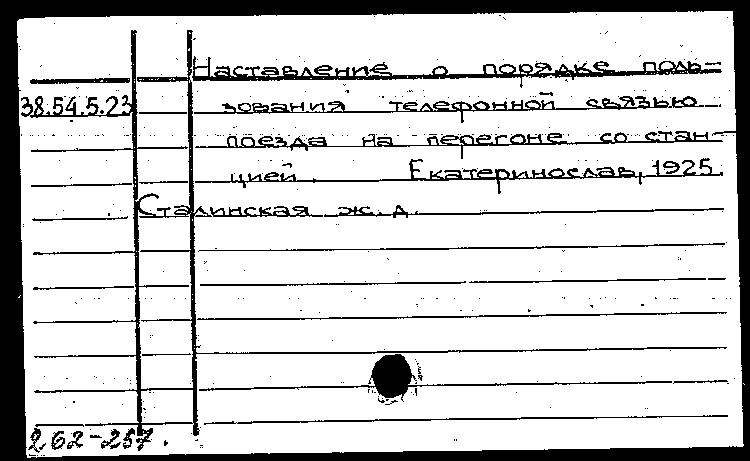 Наставление о порядке поль-
38.54.5.23 зования телефонной связью
поезда на перегоне со стан-
цией. Екатеринослав, 1925.
Сталинская ж.д.
262-257.